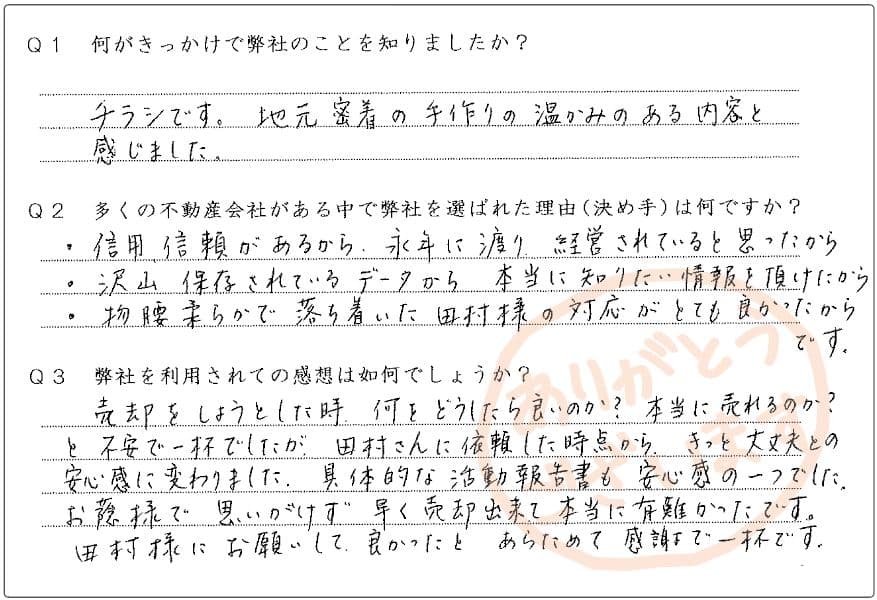 Q1 何がきっかけで弊社のことを知りましたか？
チラシです。地元密着の手作りの温かみのある内容と
感じました。
Q2 多くの不動産会社がある中で弊社を選ばれた理由(決め手)は何ですか？
・信用信頼があるから、永年に渡り 経営されていると思ったから
・沢山 保存されているデータから 本当に知りたい情報を頂けたから
・物腰柔らかで落ち着いた田村様の対応がとても良かったから
です。
Q3 弊社を利用されての感想は如何でしょうか？
売却をしようとした時、何をどうしたら良いのか？本当に売れるのか？
と不安で一杯でしたが、田村さんに依頼した時点から、きっと大丈夫との
安心感に変わりました。具体的な活動報告書も安心感の一つでした。
お蔭様で 思いがけず 早く売却出来て本当に有難かったです。
田村様にお願いして、良かったと あらためて 感謝で一杯です。
ありがとう
ございます